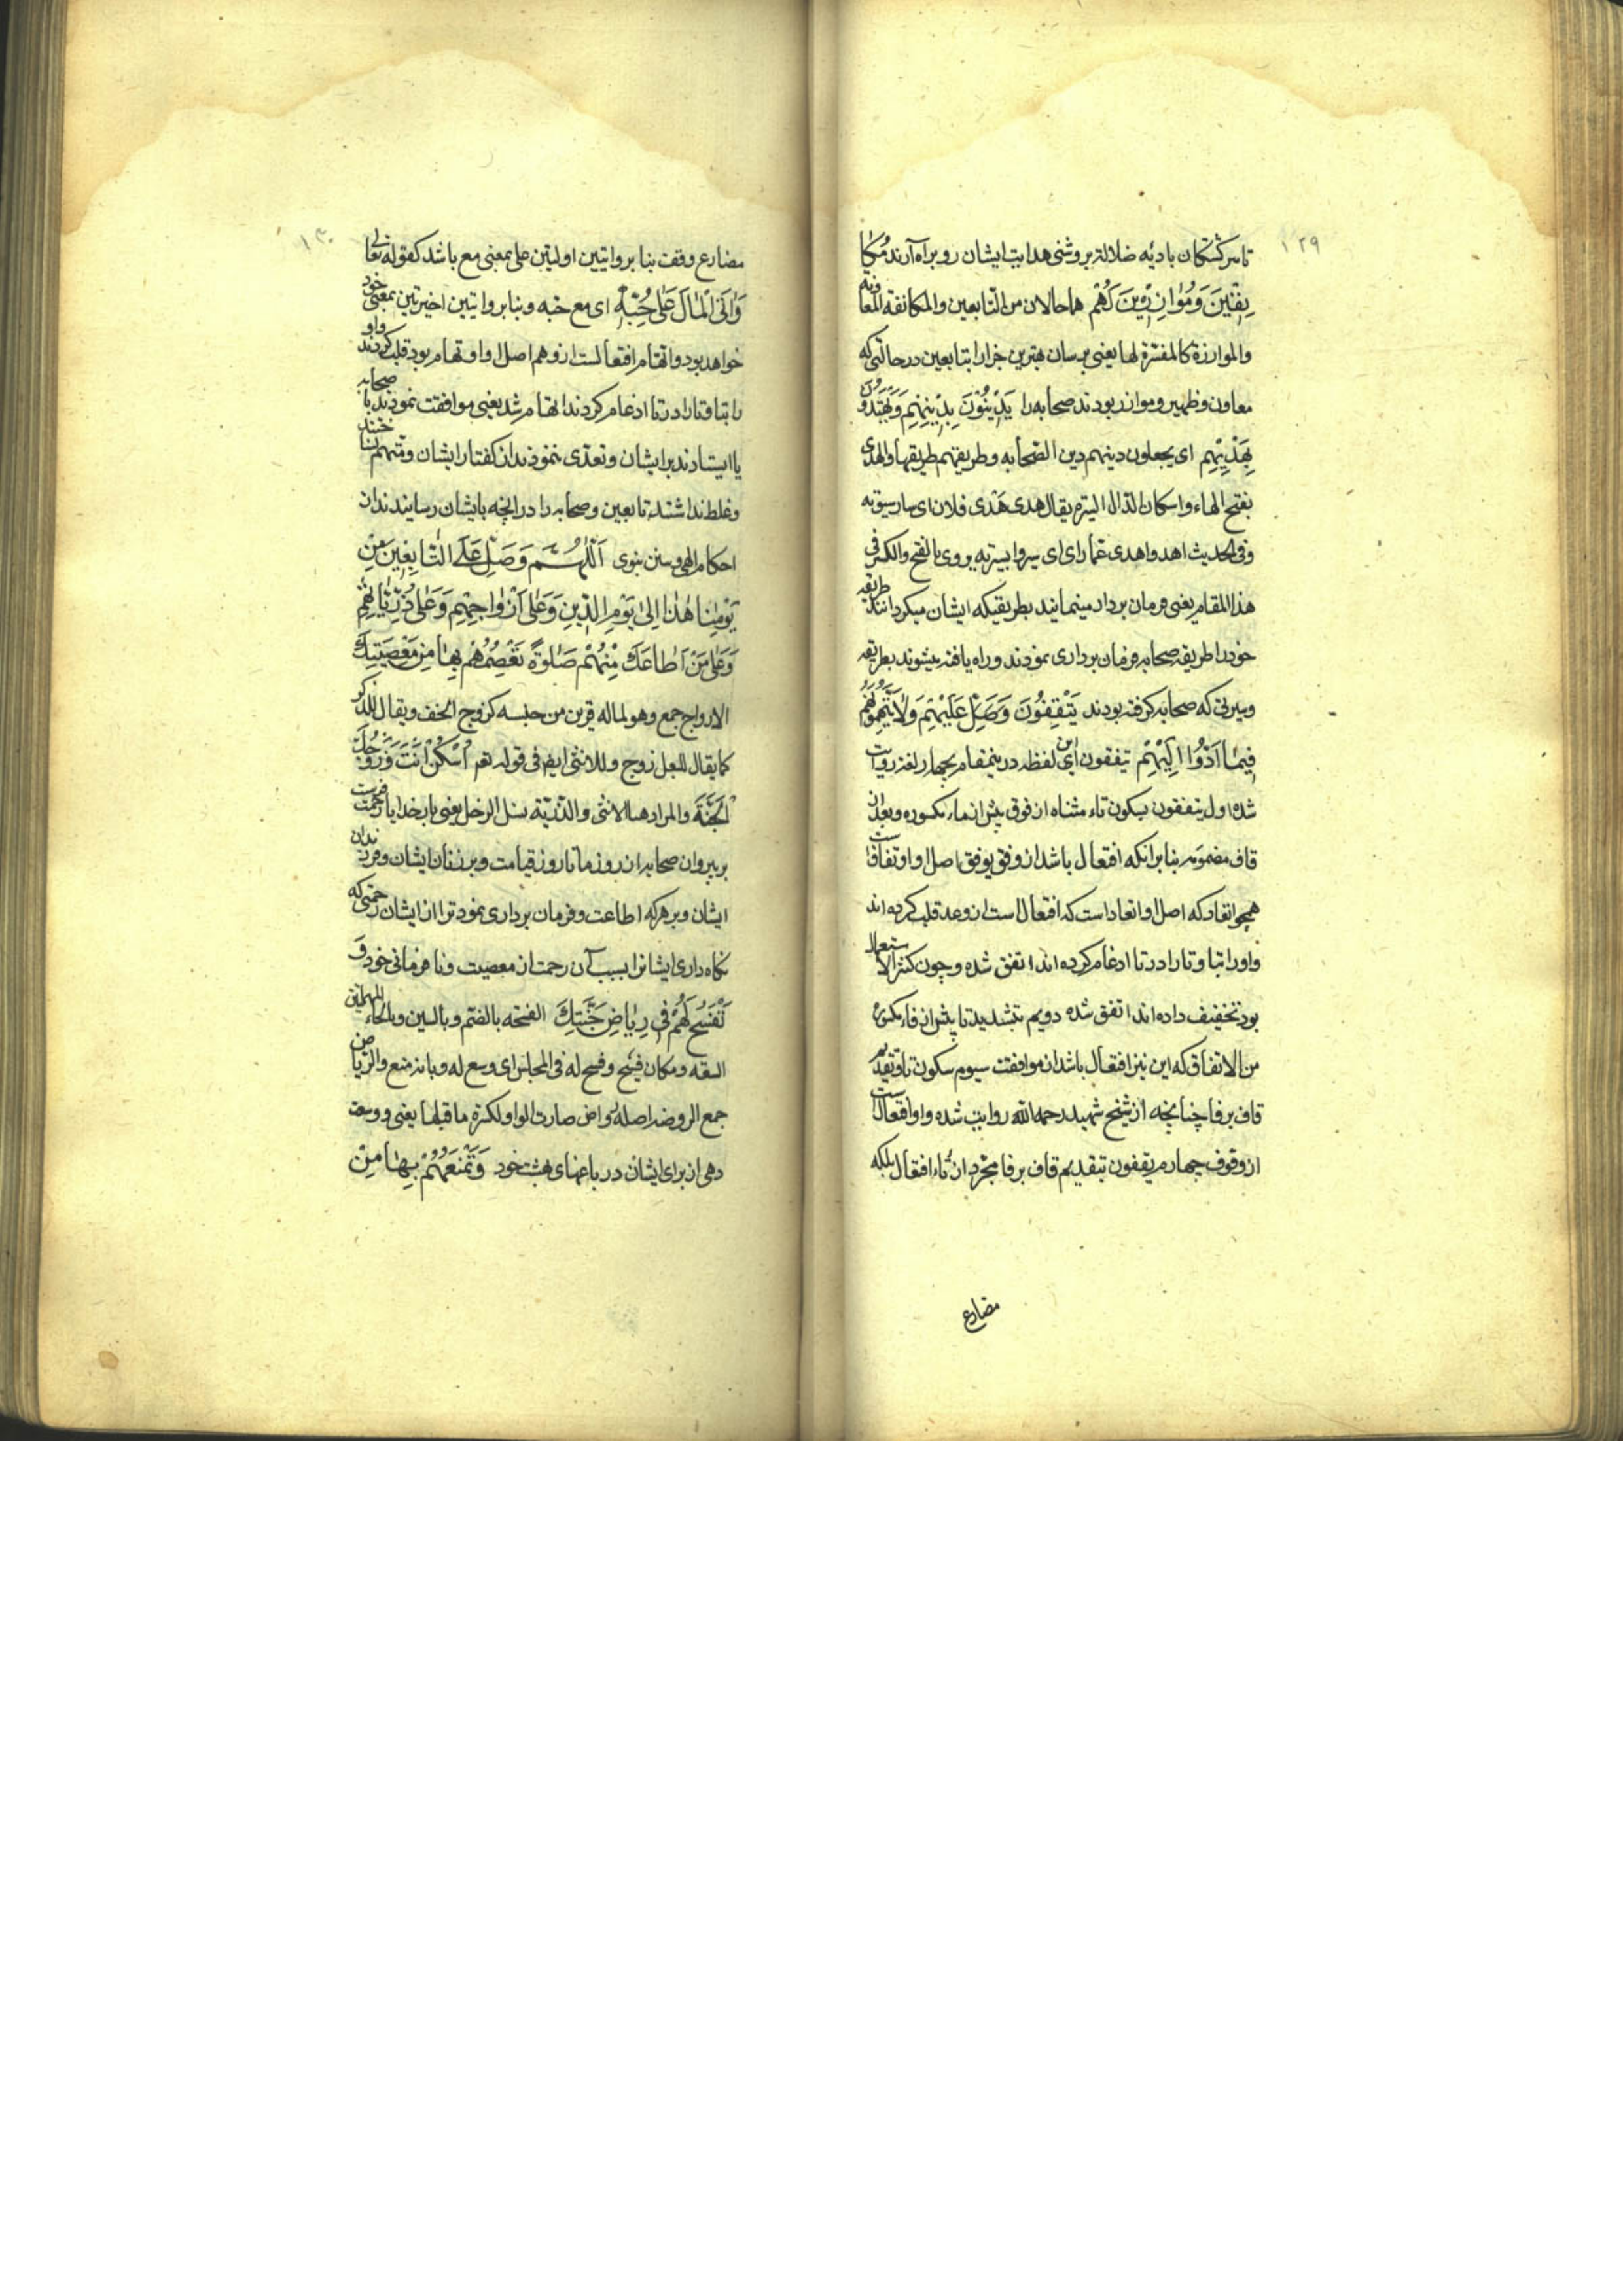 ١٢٩
تا سرکشتکان بادیه ضلالة بروشنی هدایت ایشان رو براه آرند مُكٰا
نِفٖينَ وَمُوٰازِرٖينَ لَهُم هما حالان من التابعین والمكانفة المعاونة
والموازرة کالمفسّرة لها یعنی برسان بهترین جزا را بتابعین در حالتی که
معاون وظهیر وموازر بودند صحابه را يَدٖينُونَ بِدٖينِهِم وَيَهْتَدُونَ
بِهَدْيِهِم ای یجعلون دینهم دین الصّحابه وطریقهم طریقها والهدی
بفتح الهاء واسکان الدّال السیرة یقال هدی هَدْی فلان ای سار سیرته
وفی الحدیث اهدوا هدی عمّار ای سیروا بسیرته یروی بالفتح والکسر فی
هذا المقام یعنی فرمان بردار مینمایند بطریقیکه ایشان میکردانند طریقه
خود را طریقه صحابه فرمان برداری نمودند وراه یافته میشوند بطریقه
وسیرتی که صحابه کرفته بودند يَتْفِقُونَ وَصَلِّ عَلَيْهِم وَلاٰيَتَّهِمُونَهُمْ
فٖيمٰا اَدَّوْا اِلَيْهِم یتفقون این لفظه درینمقام بچهار لغة روایت
شده اول یتفقون بسکون تاء مثناه از فوق پیش از فاء مکسوره وبعد از ان
قاف مضمومه بنابر آنکه افتعال باشد از وفق یوفق اصل او اوتفاقا ست
همچو اتعاد که اصل اوتعاد است که افتعال است از وعد قلب کرده اند
واو را بتا وتا را در تا ادغام کرده اند اتفق شده وچون کثیر الاستعمال
بود تخفیف داده اند اتفق شده دویم بتشدید تا پیش از فاء مکسوره
من الاتفاق که این نیز افتعال باشد از موافقت سیوم سکون تا وتقدیم
قاف بر فا چنانچه از شیخ شهید رحمه الله روایت شده واو افتعال ست
از وقوف چهارم یقفون بتقدیم قاف بر فا مجرّد از تاء افتعال بلکه
مضارع
١٣٠
مضارع وقفت بنابر روایتین اولیتین علی بمعنی مع باشد کقوله تعالی
وَاٰتَى الْمٰالَ عَلٰى حُبِّهٖ ای مع حبّه وبنابر روایتین اخیرتین بمعنی خود
خواهد بود واتهام افتعالست از وهم اصل او اوتهام بود قلب کردند واو
را بتا وتا را در تا ادغام کردند اتهام شد یعنی موافقت نمودند با صحابه
یا ایستادند بر ایشان وتعدّی ننمودند از کفتار ایشان ومتهم نساختند
وغلط نداشتند تابعین وصحابه را در انچه بایشان رسانیدند از
احکام الهی وسنن نبوی اَللّٰهُمَّ وَصَلِّ عَلَى التّٰابِعٖينَ مِنْ
يَوْمِنٰا هٰذٰا اِلٰى يَوْمِ الدّٖينِ وَعَلٰى اَزْوٰاجِهِم وَعَلٰى ذُرِّيّٰاتِهِمْ
وَعَلٰى مَنْ اَطٰاعَكَ مِنْهُمْ صَلٰوةً تَعْصِمُهُمْ بِهٰا مِنْ مَعْصِيَتِكَ
الازواج جمع وهو لما له قرین من جنسه کزوج الخف ویقال للذکر
کما یقال للبعل زوج وللانثی ایضا فی قوله تعم اُسْكُنْ اَنْتَ وَزَوْجُكَ
الْجَنَّةَ والمراد هنا الانثی والذریّة نسل الرجل یعنی بار بخدایا رحمت فرست
بر پیروان صحابه از روز ما تا روز قیامت وبر زنان ایشان وفرزندان
ایشان وبر هرکه اطاعت وفرمان برداری نمود ترا از ایشان رحمتی که
نکاه داری ایشانرا بسبب آن رحمت از معصیت ونا فرمانی خود وَ
تَفْسَحُ لَهُمْ فٖى رِيٰاضِ جَنَّتِكَ الفسحه بالضّم وبالسین وبالحاء المهملتین
السعه ومکان فسیح وفسح له فی المجلس ای وسع له وبابه منع والریاض
جمع الروضه اصله رواض صارت الواو لکسرة ما قبلها یعنی ووسعت
دهی از برای ایشان در باغهای بهشت خود وَتَمْنَعُهُمْ بِهٰا مِنْ